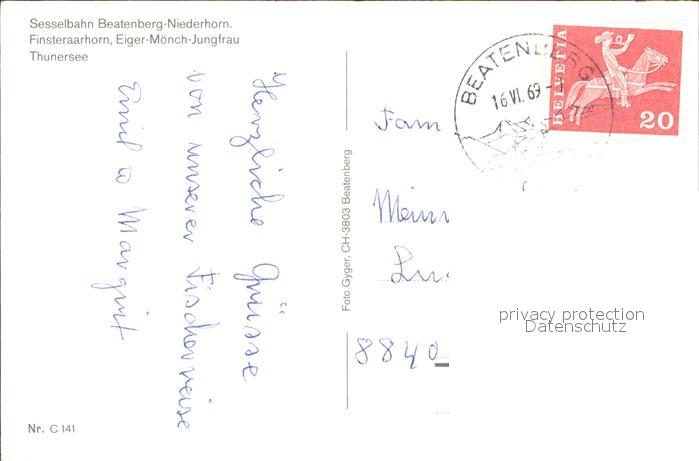 Sesselbahn Beatenberg-Niederhorn.
Finsteraarhorn, Eiger-Mönch-Jungfrau
Thunersee
Herzliche Grüsse
von unserer Fischerreise
Emil &
Margrit
Foto Gyger, CH-3803 Beatenberg
BEATENBERG
16.VI.69
HELVETIA
20
Fam
8840
privacy protection
Datenschutz
Nr. C 141